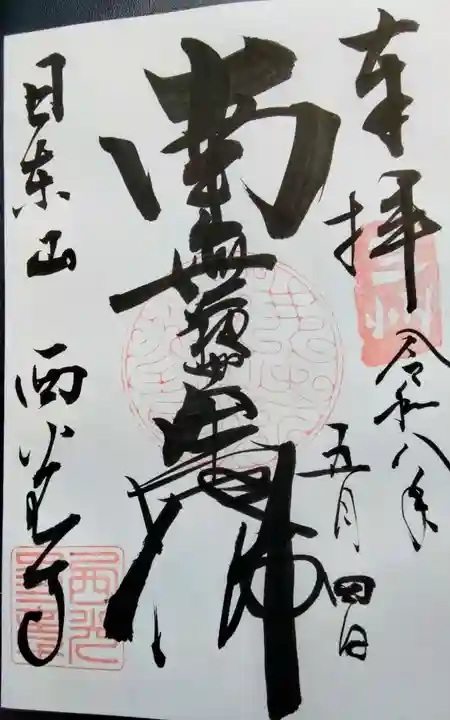 奉拝
令和八年
五月四日
南無阿弥陀佛
日東山 西光寺